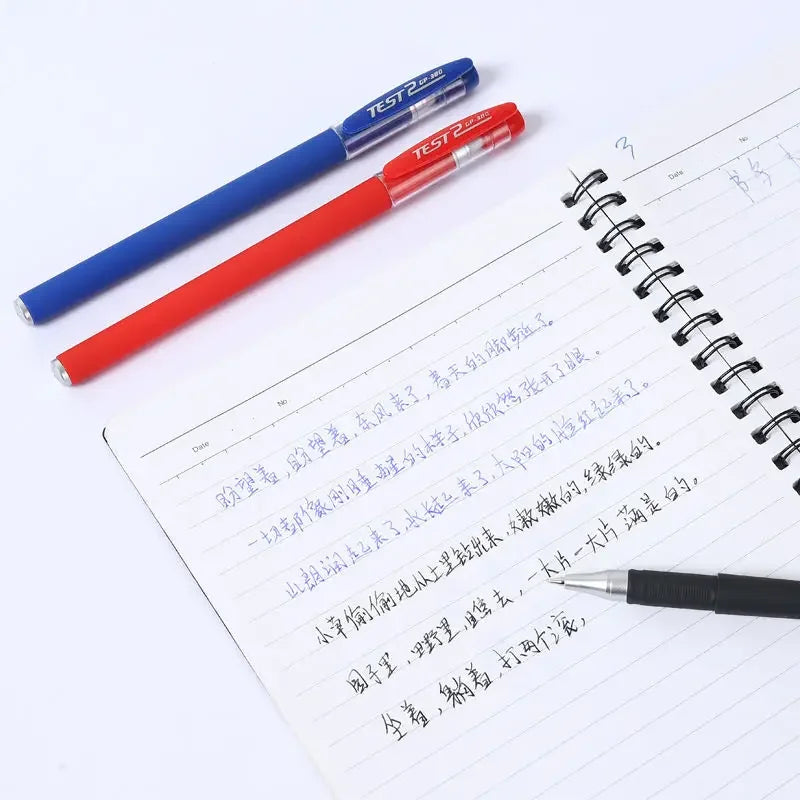 TEST2 GP-380
TEST2 GP-380
3
No
Date
书写
No
Date
盼望着，盼望着，东风来了，春天的脚步近了。
一切都像刚睡醒的样子，欣欣然张开了眼。
山朗润起来了，水涨起来了，太阳的脸红起来了。
小草偷偷地从土里钻出来，嫩嫩的，绿绿的。
园子里，田野里，瞧去，一大片一大片满是的。
坐着，躺着，打两个滚，